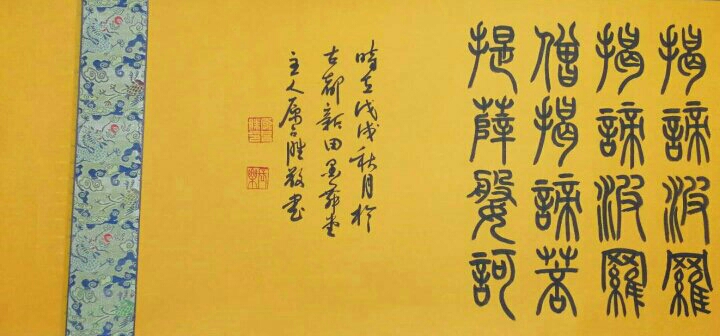 揭諦波羅
揭諦波羅
僧揭諦菩
提薛婆訶
時在戊戌秋月於
古都新田墨堂
主人原勝敬書